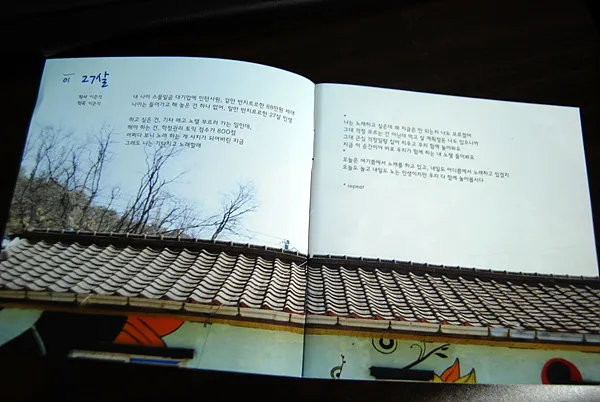 01 27살
작사 이준석
작곡 이준석
내 나이 스물일곱 대기업에 인턴사원, 겉만 번지르르한 88만원 세대
나이는 들어가고 해 놓은 건 하나 없어, 말만 번지르르한 27살 인생
하고 싶은 건, 기타 매고 노랠 부르러 가는 일인데,
해야 하는 건, 학점관리 토익 점수가 800점
어쩌다 보니 노래 하는 게 사치가 되어버린 지금
그래도 나는 기타치고 노래할래
*
나는 노래하고 싶은데 왜 지금은 안 되는지 나도 모르겠어
그대 걱정 모르는 건 아닌데 먹고 살 계획들은 나도 있으니까
그대 근심 걱정일랑 집어 치우고 우리 함께 놀아봐요
지금 이 순간이야 바로 우리가 함께 하는 내 노랠 들어봐요
*
오늘은 여기쯤에서 노래를 하고 있고, 내일도 어디쯤에서 노래하고 있겠지
오늘도 놀고 내일도 노는 인생이지만 우리 다 함께 놀아봅시다
* repeat